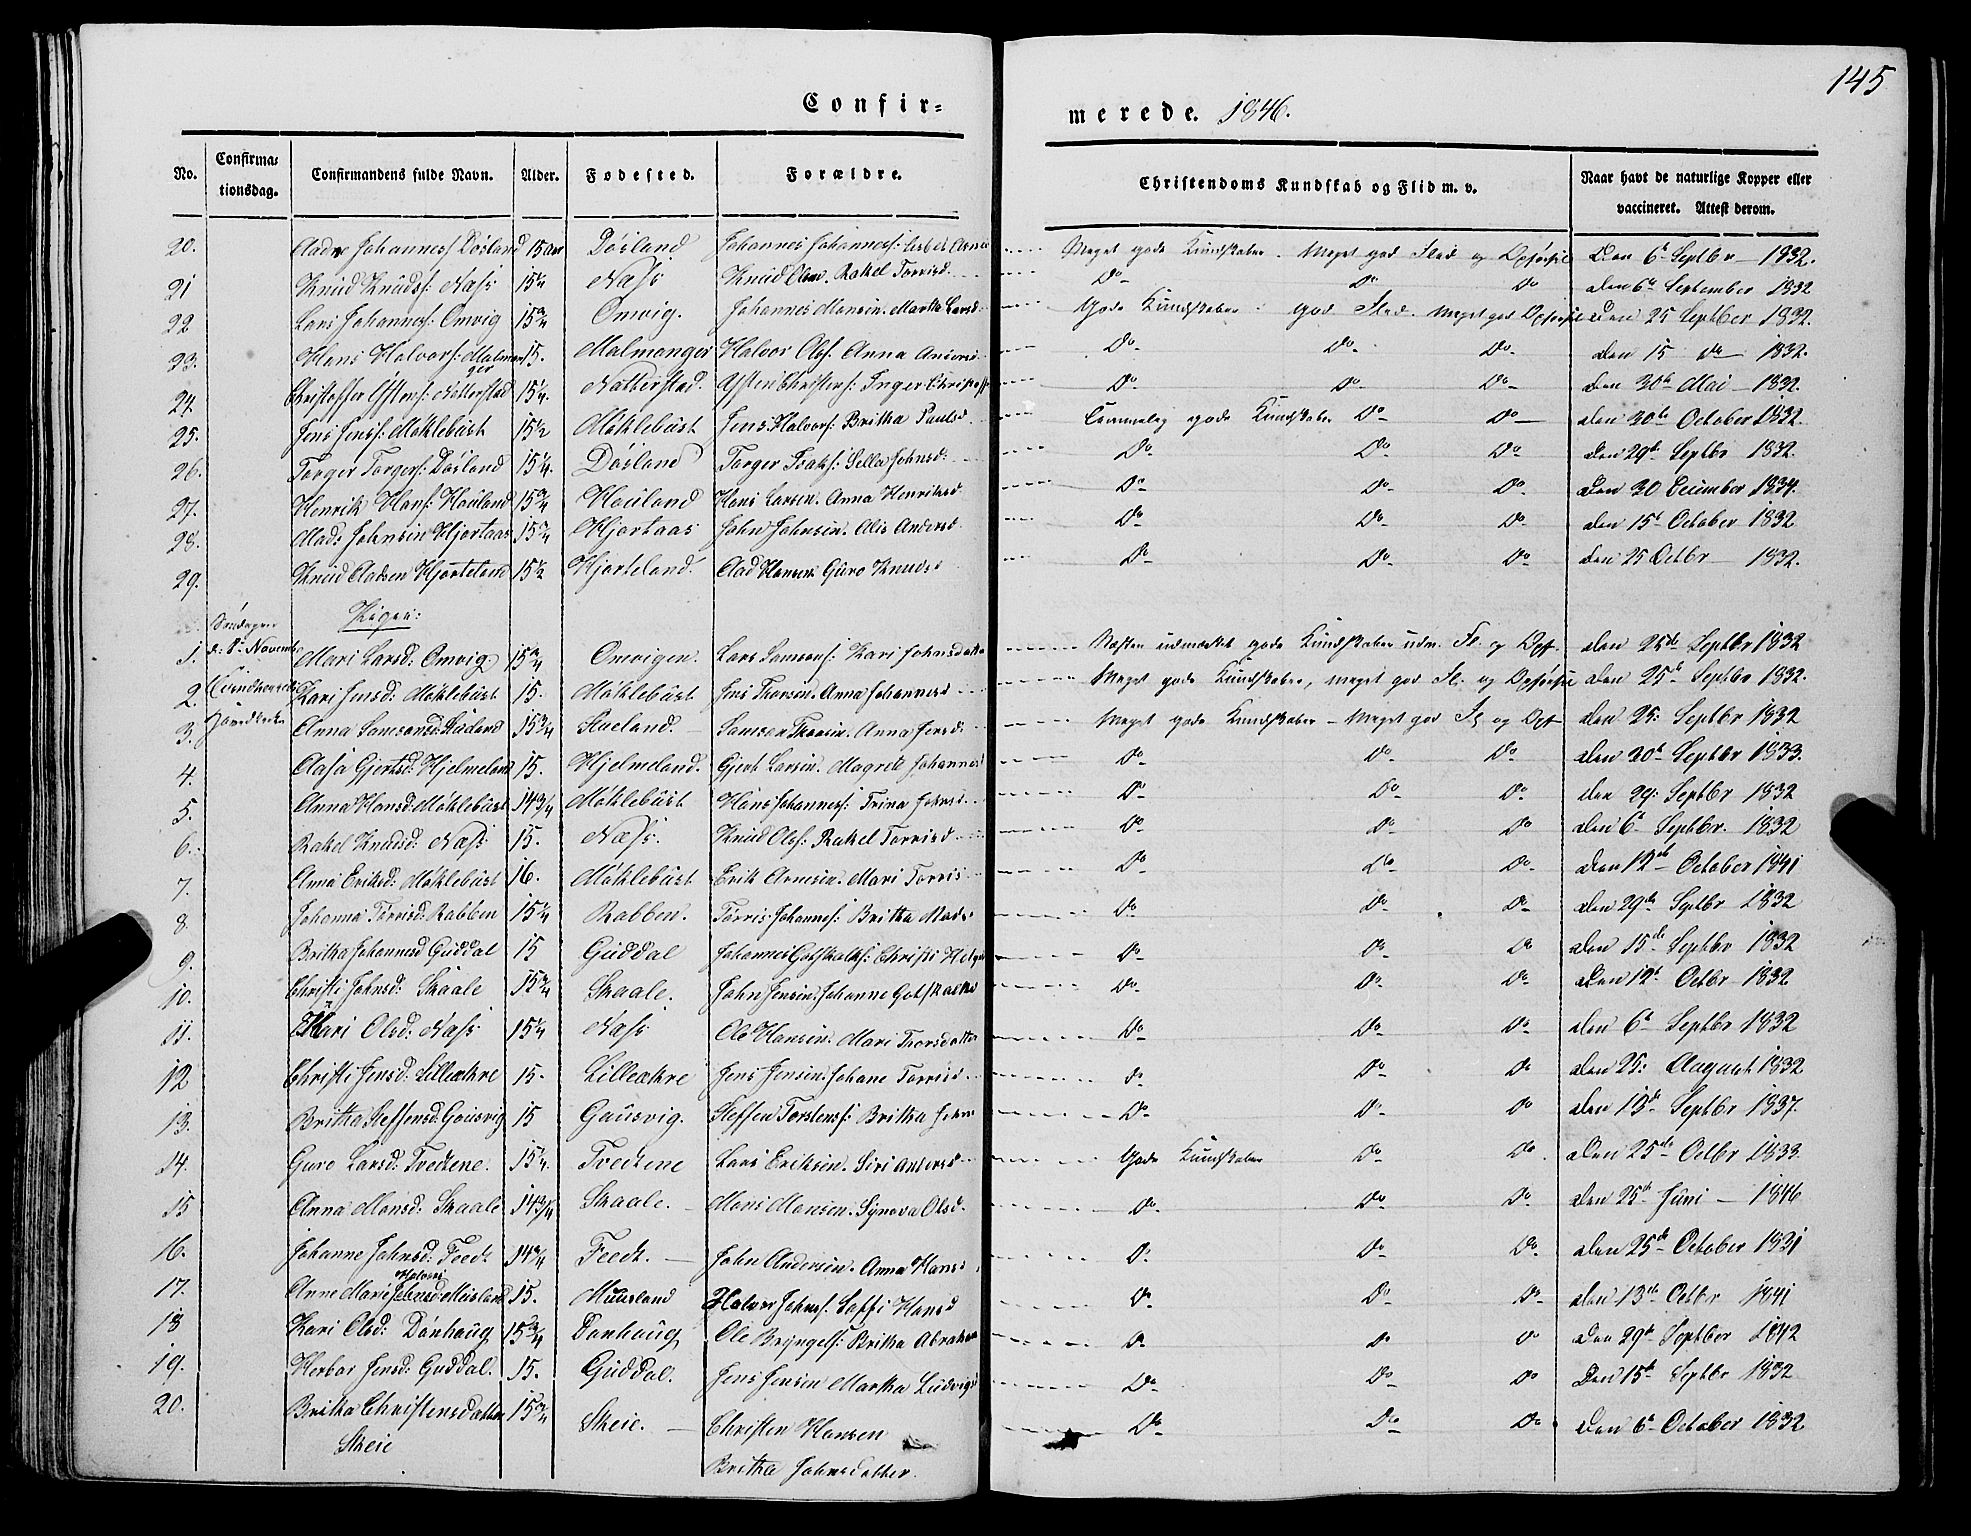 145
Confir= merede. 1846.
No. Confirma= tionsdag. Confirmandens fulde Navn. Alder. Fødested. Forældre. Christendoms Kundskab og Flid m. v. Naar havt de naturlige Kopper eller vaccineret. Attest derom.
20. Johanness: Døsland 15 Døsland Johannes Johanness: Meget gode Kundskaber. Meget god Flid og Opførsel Den 6te Septbr 1832.
21 Knud Knuds: Næss 15¼ Næss Knud Olsen. Rakel Torrisd. Do Do Do den 6te September 1832
22 Lars Johanness: Omvig 15¾ Omvig. Johannes Monsen. Martha Larsd. Gode Kundskaber. god Flid. Meget god Opførsel Den 25 Septber 1832.
23. Hans Halvors: Malmanger 15. Malmanger Halvor Ols. Anna Do Do Do den 15 do 1832.
24. Christoffer Østens: Natterstad 15¼. Natterstad. Østen Christens: Inger Do Do Do den 30te Mai 1832.
25. Jens Jens: Møklebust 15½ Møklebust Jens Halvors: Britha Paulsd. Temmelig gode Kundskaber Do Do den 30te October 1832.
26. Torger Torgers: Døsland 15¼. Døsland Torger Isaks: Sella Johnsd: Do Do Do den 29de Septbr 1832.
27. Henrik Hans: Houland 15¾ Houland Hans Larsen. Anna Henriksd Do Do Do den 30 1834.
28. Mads Johnsen Hjortaas 15¾ Hjortaas John Johnsen. Alis Andersd. Do Do Do den 15de October 1832
29. Knud Aadsen Hjorteland 15½ Hjorteland. Aad Hansen. Guro Knudsd Do Do Do den 25 Octbr 1832.
Piger:
1. Søndagen d: 8de Novemb. Mari Larsd: Omvig 15¾ Omvigen. Lars Samsons: Kari Johnsdatter Næsten udmærket gode Kundskaber udm. Fl. og Opf. den 25de Septbr 1832
2. Kari Jensd: Møklebust 15. Møklebust Jens Thorsen. Anna Johannesd Meget gode Kundskaber, meget god Fl. og Opførsel den 25de Septbr 1832.
3. Hovedkirke Anna Samsonsd: Stueland 15¾ Stueland. Samson Anna Jensd: Meget gode Kundskaber - Meget god Fl. og Opf. den 25: Septbr 1832
4. Aasa Gjertsd: Hjelmeland 15. Hjelmeland. Gjert Larsen. Magrete Johannesd Do Do Do den 20de Septbr 1833.
5. Anna Hansd: Møklebust 14¾ Møklebust Hans Johanness: Trina Johnsd Do Do Do den 29: Septbr 1832
6. Rakel Knudsd: Næss 15. Næss. Knud Ols: Rakel Torrisd Do Do Do den 6te Septbr. 1832
7. Anna Eriksd: Møklebust 16. Møklebust Erik Arnesen. Mari Torris Do Do Do den 12te October 1841
8. Johanna Torrisd: Rabben 15¼ Rabben. Torris Johanness: Britha Mads Do Do Do den 29de Septbr 1832
9. Britha Johannesd Guddal 15 Guddal Johannes Gotskalks: Christi Do Do Do den 15de Septbr 1832
10. Christi Johnsd: Skaale 15¾ Skaale. John Jensen. Johanne Gotskalks Do Do Do Den 12te Octbr 1832
11. Kari Olsd: Næss 15¼ Næss Ole Hansen. Mari Thorsdatter Do Do Do den 6te Septbr 1832
12 Christi Jensd: Lilleækre 15. Lilleækre Jens Jensen. Johane Torrisd. Do Do Do den 25: August 1832
13. Britha Steffensd: Gousvig 15 Gausvig. Steffen Torstens: Britha Do Do Do den 13de Septbr 1837.
14. Guro Larsd: Tvedtene. 15¼. Tvedtene Lars Eriksen. Siri Andersd Gode Kundskaber Do Do den 25de Octbr 1833.
15 Anna Monsd: Skaale 14¾ Skaale. Mons Monsen. Synova Olsd. Do Do Do den 25de Juni 1846
16. Johanne Johnsd: Teedt 14¾ Teedt. John Andersen. Anna Hans Do Do Do den 25de October 1831
17. Anne Marie Halvors Johnsd Muusland 15. Muusland Halvor Johns: Hansd Do Do Do den 13de Octbr 1841
18 Kari Olsd: Dønhaug 15¾ Dønhaug Ole Bryngels: Britha Do Do Do den 29de Septber 1842
19. Herbor Jensd: Guddal. 15. Guddal. Jens Jensen Martha Ludvigs Do Do Do Den 15de Septbr 1832
20. Britha Christensdatter Skeie 15¾ Skeie. Christen Hansen Britha Johnsdatter. Do Do Do den 6te October 1832